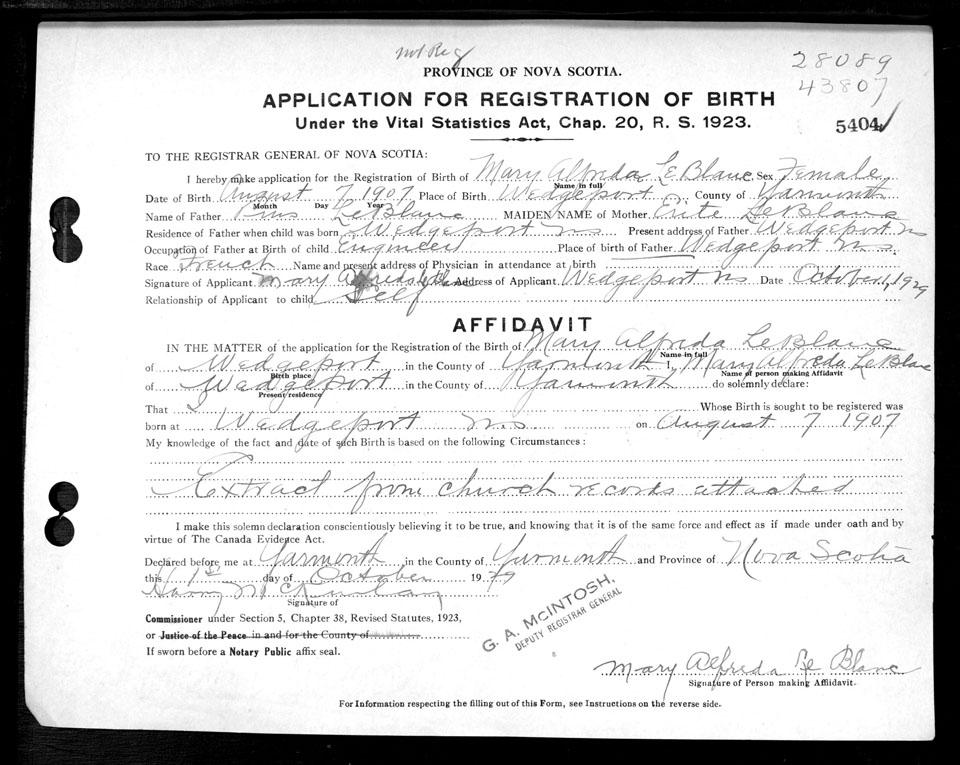 not Reg
28089
43807
PROVINCE OF NOVA SCOTIA.
APPLICATION FOR REGISTRATION OF BIRTH
Under the Vital Statistics Act, Chap. 20, R. S. 1923.
5404
TO THE REGISTRAR GENERAL OF NOVA SCOTIA:
I hereby make application for the Registration of Birth of Mary Alfreda LeBlanc Sex Female
Name in full
Date of Birth August 7, 1907 Place of Birth Wedgeport County of Yarmouth
Month Day Year
Name of Father Pius LeBlanc MAIDEN NAME of Mother Exite LeBlanc
Residence of Father when child was born Wedgeport N S Present address of Father Wedgeport N S
Occupation of Father at Birth of child Engineer Place of birth of Father Wedgeport N S
Race French Name and present address of Physician in attendance at birth
Signature of Applicant Mary Alfreda LeBlanc Address of Applicant Wedgeport N S Date October 1, 1929
Relationship of Applicant to child Self
AFFIDAVIT
IN THE MATTER of the application for the Registration of the Birth of Mary Alfreda LeBlanc
Name in full
of Wedgeport in the County of Yarmouth I, Mary Alfreda LeBlanc
Birth place Name of person making Affidavit
of Wedgeport in the County of Yarmouth do solemnly declare:
Present residence
That I Whose Birth is sought to be registered was
born at Wedgeport N S on August 7 1907
My knowledge of the fact and date of such Birth is based on the following Circumstances:
Extract from church records attached
I make this solemn declaration conscientiously believing it to be true, and knowing that it is of the same force and effect as if made under oath and by
virtue of The Canada Evidence Act.
Declared before me at Yarmouth in the County of Yarmouth and Province of Nova Scotia
this 1st day of October 1929
Harry
Signature of
Commissioner under Section 5, Chapter 38, Revised Statutes, 1923,
or Justice of the Peace in and for the County of
If sworn before a Notary Public affix seal.
G. A. McINTOSH,
DEPUTY REGISTRAR GENERAL
Mary Alfreda Le Blanc
Signature of Person making Affidavit.
For Information respecting the filling out of this Form, see Instructions on the reverse side.